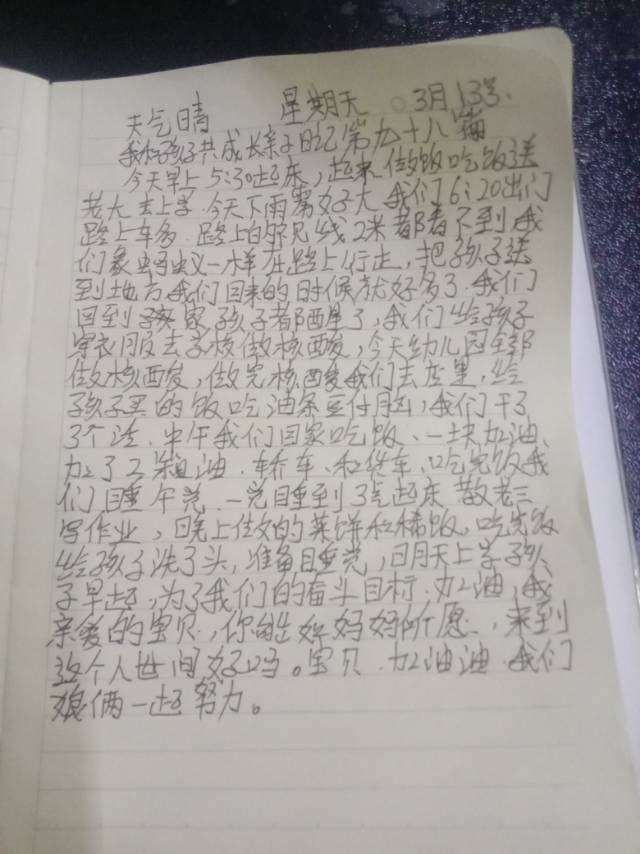 天气晴 星期天 3月13号.
我和孩子共成长亲子日记第九十八篇
今天早上5:30起床,起来做饭吃饭送
老大去上学.今天下雨雾好大.我们6:20出门
路上车多.路上的能见线2米都看不到.我
们象蚂蚁一样在路上行走,把孩子送
到地方.我们回来的时候就好多了.我们
回到家,孩子都醒了,我们给孩子
穿衣服去学校做核酸,今天幼儿园全部
做核酸,做完核酸我们去店里,给
孩子买的饭吃油条豆付脑,我们干了
3个活.中午我们回家吃饭、一块加油、
加了2箱油.轿车、和货车、吃完饭我
们睡午觉.一觉睡到3点起床 教老三
写作业,晚上做的菜饼和稀饭.吃完饭
给孩子洗了头,准备睡觉,明天上学孩
子早起,为了我们的奋斗目标.加油,我
亲爱的宝贝,你能如妈妈所愿,来到
这个人世间好吗。宝贝.加油油.我们
娘俩一起努力。